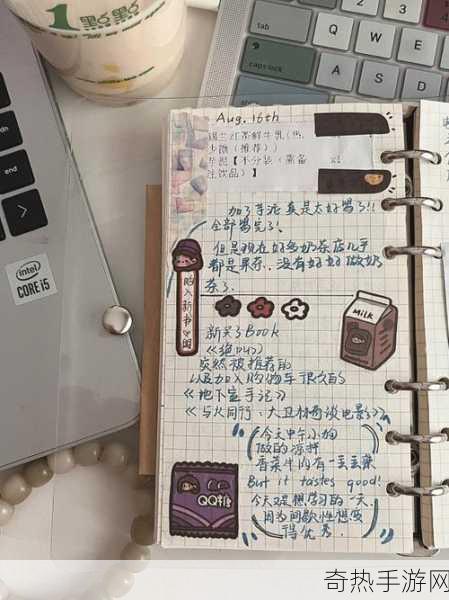 1點點
caps lock
Q
W
E
A
S
D
intel
CORE i5
Aug. 16th
锡兰红茶鲜牛乳(热
少糖(推荐))
芋泥【不分装(需备
注饮品)】
x1
加了芋泥真是太好喝了!!
全部喝完了!
但是现在好多奶茶店几乎
都是果茶,没有好好做奶
茶了.
购入新书
新买了Book
突然被推荐的
以及加入购物车很久的
《地下室手记》
《与火同行:大卫林奇谈电影》
Milk
今天中午小狗
做的凉拌
香菜牛肉有一丢丢柴
But it tastes good!
今天又是想学习的一天
因为间歇性想要
变得优秀.
QQ糖
奇热手游网